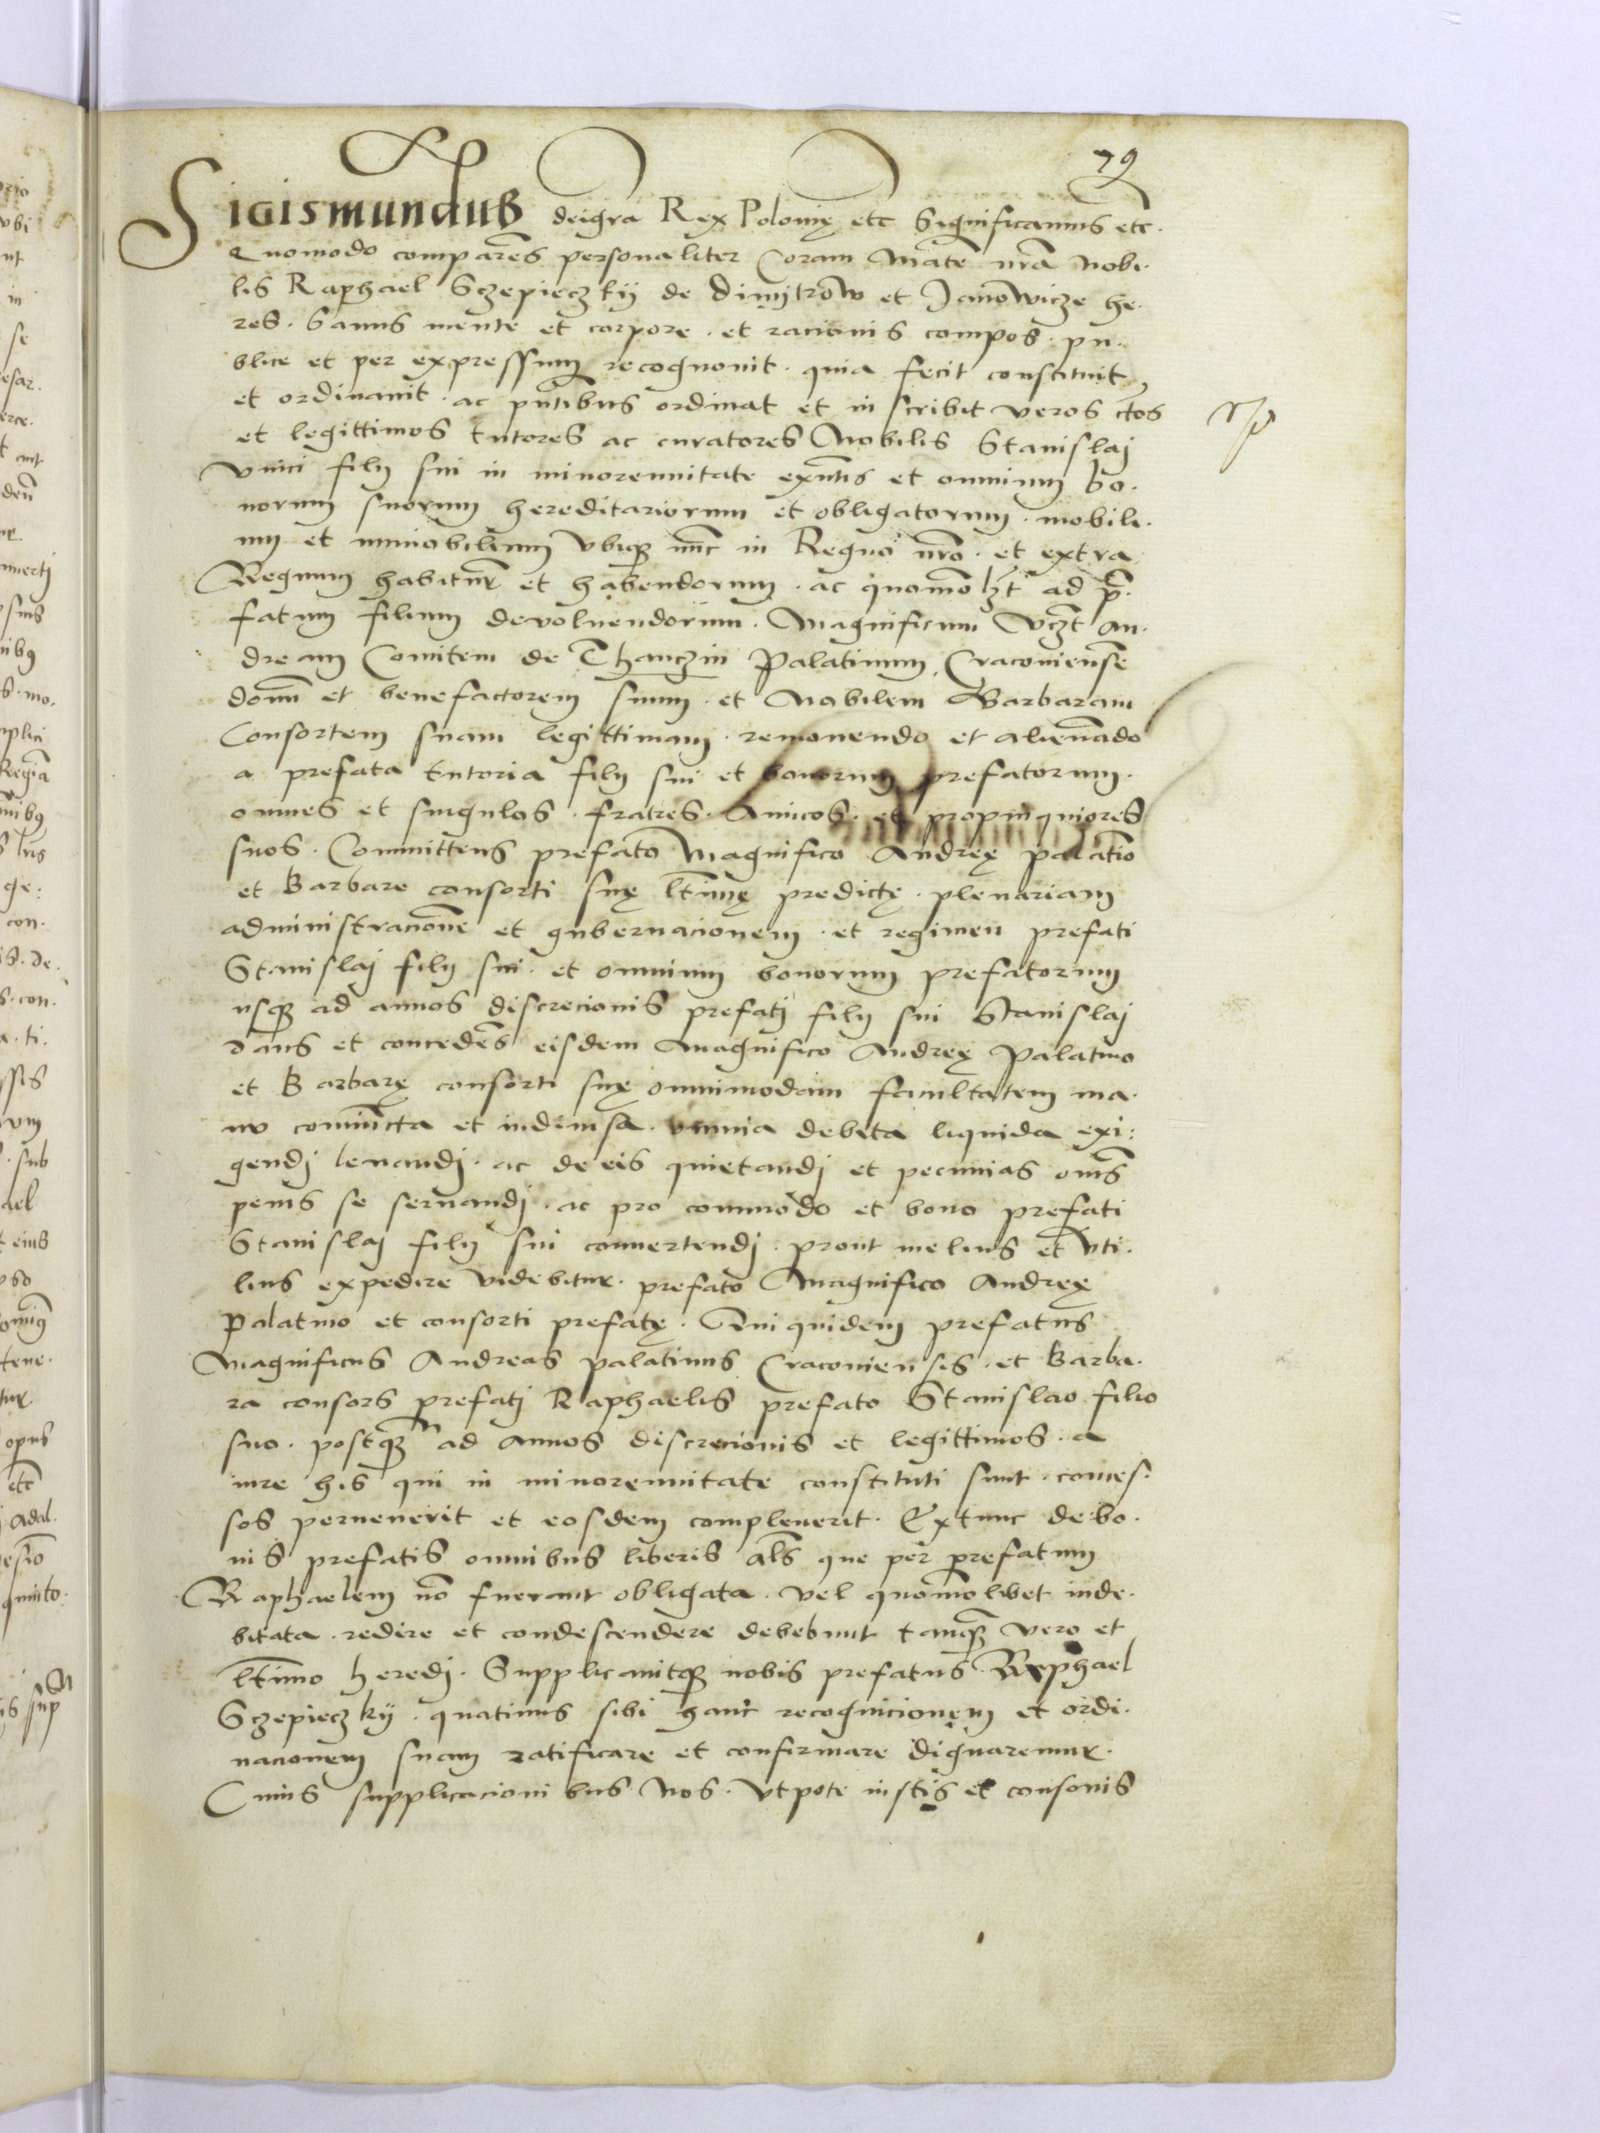 79
Sigismundus deigra Rex Polonię etc Significamus etc.
Quomodo comparēs personaliter Coram Mate nra Nobi.
lis Raphael Sczepieczkÿ de Dimitrow et Janowicze he.
res. Sanus mente et corpore. et racionis compos. pu.
blice et per expressum recognovit. quia fecit constituit
et ordinavit. ac pntibus ordinat et inscribit veros ctos
et legittimos tutores ac curatores Nobilis Stanislaj
Unici filij sui in minorennitate exntis et omnium bo.
norum suorum hereditariorum et obligatorum. mobili.
um et immobilium Ubiqꝫ nunc in Regno nro. et extra
Regnum habitur et habendorum. ac quomolꝫt ad p̄.
fatum filium devoluendorum. Magnificum Vcꝫt An.
dream Comitem de Thanczin Palatinum Cracoviensē
domm et benefactorem suum. et Nobilem Barbaram
Consortem suam legittimam. removendo et alienādo
a prefata tutoria filij sui et bonorum prefatorum.
omnes et singulos. fratres. Amicos. et propinquiores
suos. Committens prefato Magnifico Andreę palatio
et Barbare consorti suę ltimę predictę. plenariam
administracionē et gubernacionem. et regimen prefati
Stanislaj filij sui. et omnium bonorum prefatorum
usqꝫ ad annos discrecionis prefatj filij sui Stanislaj
Dans et concedēs eisdem Magnifico Andreę Palatino
et Barbarę consorti suę omnimodam facultatem ma.
nu coniūcta et indivisa. omnia debita liquida exi:
gendj levandj. ac de eis quietandj et pecunias oms
penes se servandj. ac pro commodo et bono prefati
Stanislaj filij sui convertendj. prout melius et Uti.
lius expedire videbitur. prefato Magnifico Andreę
Palatino et consorti prefatę. Qui quidem prefatus
Magnificus Andreas palatinus Cracoviensis. et Barba.
ra consors prefatj Raphaelis prefato Stanislao filio
suo. postqꝫ ad Annos discrecionis et legittimos. a
iure his qui in minorennitate constituti sunt. conces.
sos pervenerit et eosdem compleverit. Extunc de bo.
nis prefatis omnibus liberis als que per prefatum
Raphaelem nō fuerant obligata. vel quomolibet inde.
bitata. redire et condescendere debebunt tanqꝫ vero et
ltimo heredj. Supplicavitqꝫ nobis prefatus Raphael
Sczepieczkÿ. quatinus sibi hanc recognicionem et ordi.
nacionem suam ratificare et confirmare dignaremur.
Cuius supplicacionibus Nos. Utpote iustis et consonis